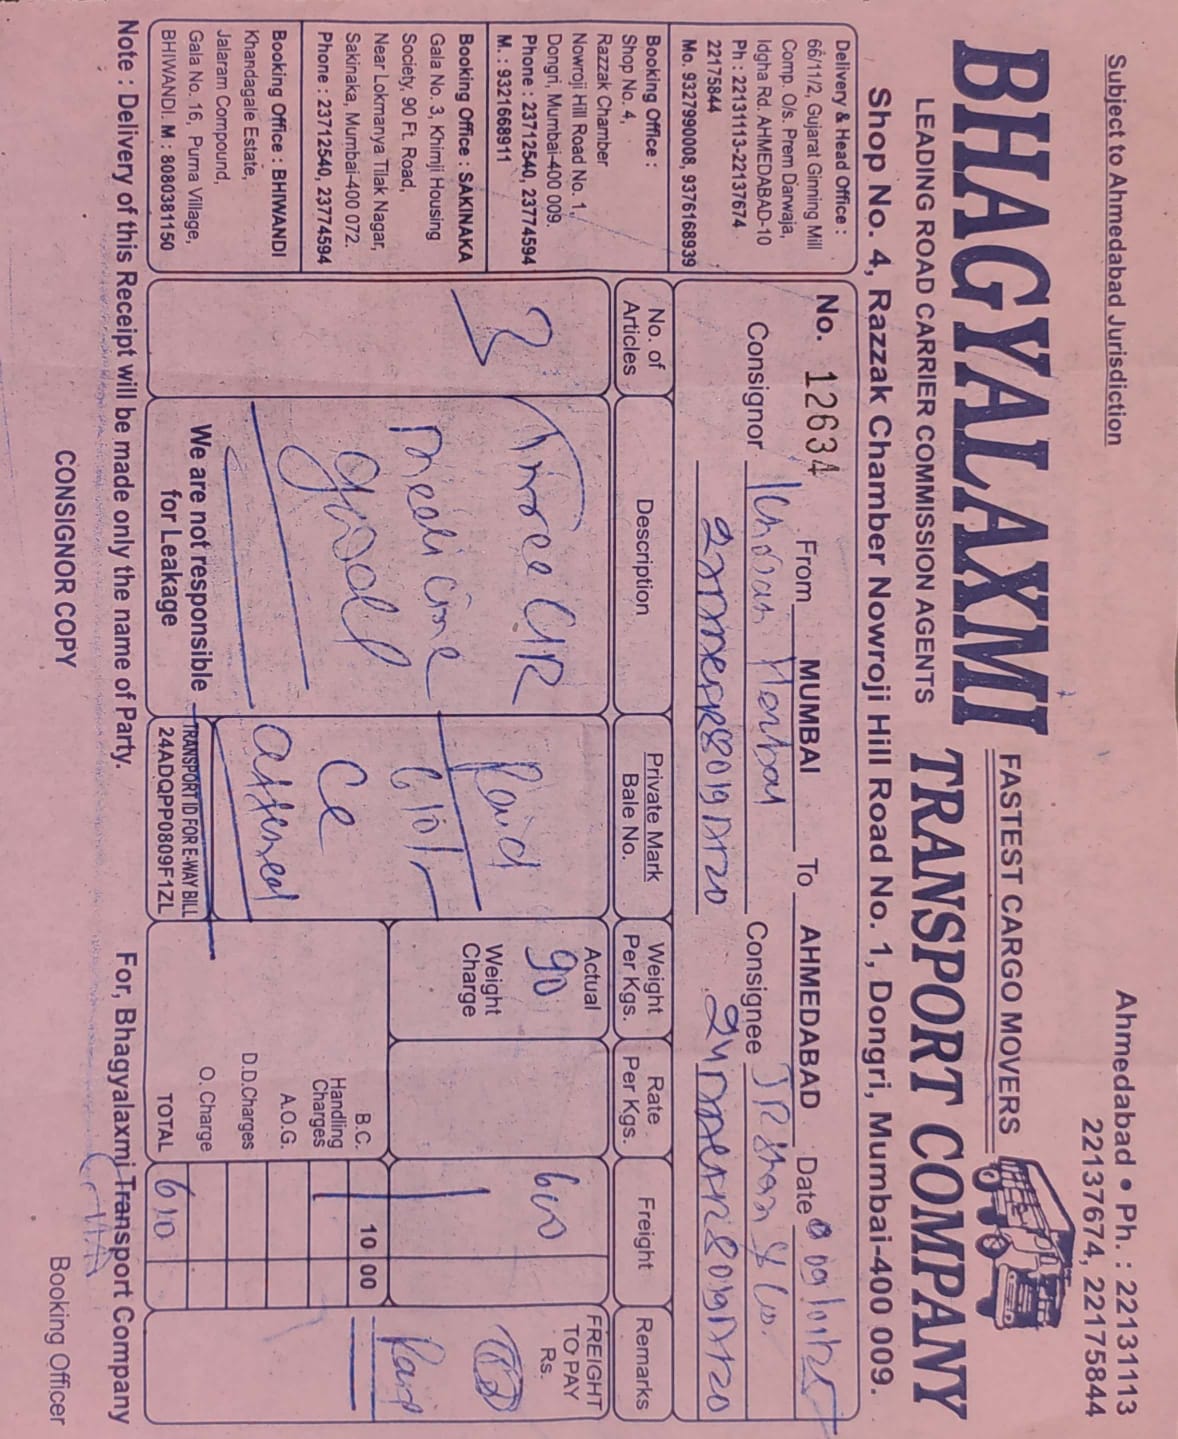 Subject to Ahmedabad Jurisdiction
Ahmedabad • Ph. : 22131113
22137674, 22175844
BHAGYALAXMI
FASTEST CARGO MOVERS
TRANSPORT COMPANY
LEADING ROAD CARRIER COMMISSION AGENTS
Shop No. 4, Razzak Chamber Nowroji Hill Road No. 1, Dongri, Mumbai-400 009.
Delivery & Head Office :
66/11/2, Gujarat Ginning Mill
Comp. O/s. Prem Darwaja,
Idgha Rd. AHMEDABAD-10
Ph : 22131113-22137674
22175844
Mo. 9327990008, 9376168939
Booking Office :
Shop No. 4,
Razzak Chamber
Nowroji Hill Road No. 1,
Dongri, Mumbai-400 009.
Phone : 23712540, 23774594
M. : 9321668911
Booking Office : SAKINAKA
Gala No. 3, Khimji Housing
Society, 90 Ft. Road,
Near Lokmanya Tilak Nagar,
Sakinaka, Mumbai-400 072.
Phone : 23712540, 23774594
Booking Office : BHIWANDI
Khandagale Estate,
Jalaram Compound,
Gala No. 16, Purna Village,
BHIWANDI. M : 8080381150
No. 12634 From MUMBAI To AHMEDABAD Date
Consignor
Consignee & Co.
No. of Articles
Description
Private Mark
Bale No.
Weight
Per Kgs.
Rate
Per Kgs.
Freight
Remarks
3
Three
medicine
good
Paid
610/-
Actual
90
Weight
Charge
600
FREIGHT
TO PAY
Rs.
Paid
B.C. 10 00
Handling
Charges
A.O.G.
D.D.Charges
O. Charge
TOTAL 610
We are not responsible
for Leakage
TRANSPORT ID FOR E-WAY BILL
24ADQPP0809F1ZL
Note : Delivery of this Receipt will be made only the name of Party.
For, Bhagyalaxmi Transport Company
CONSIGNOR COPY
Booking Officer